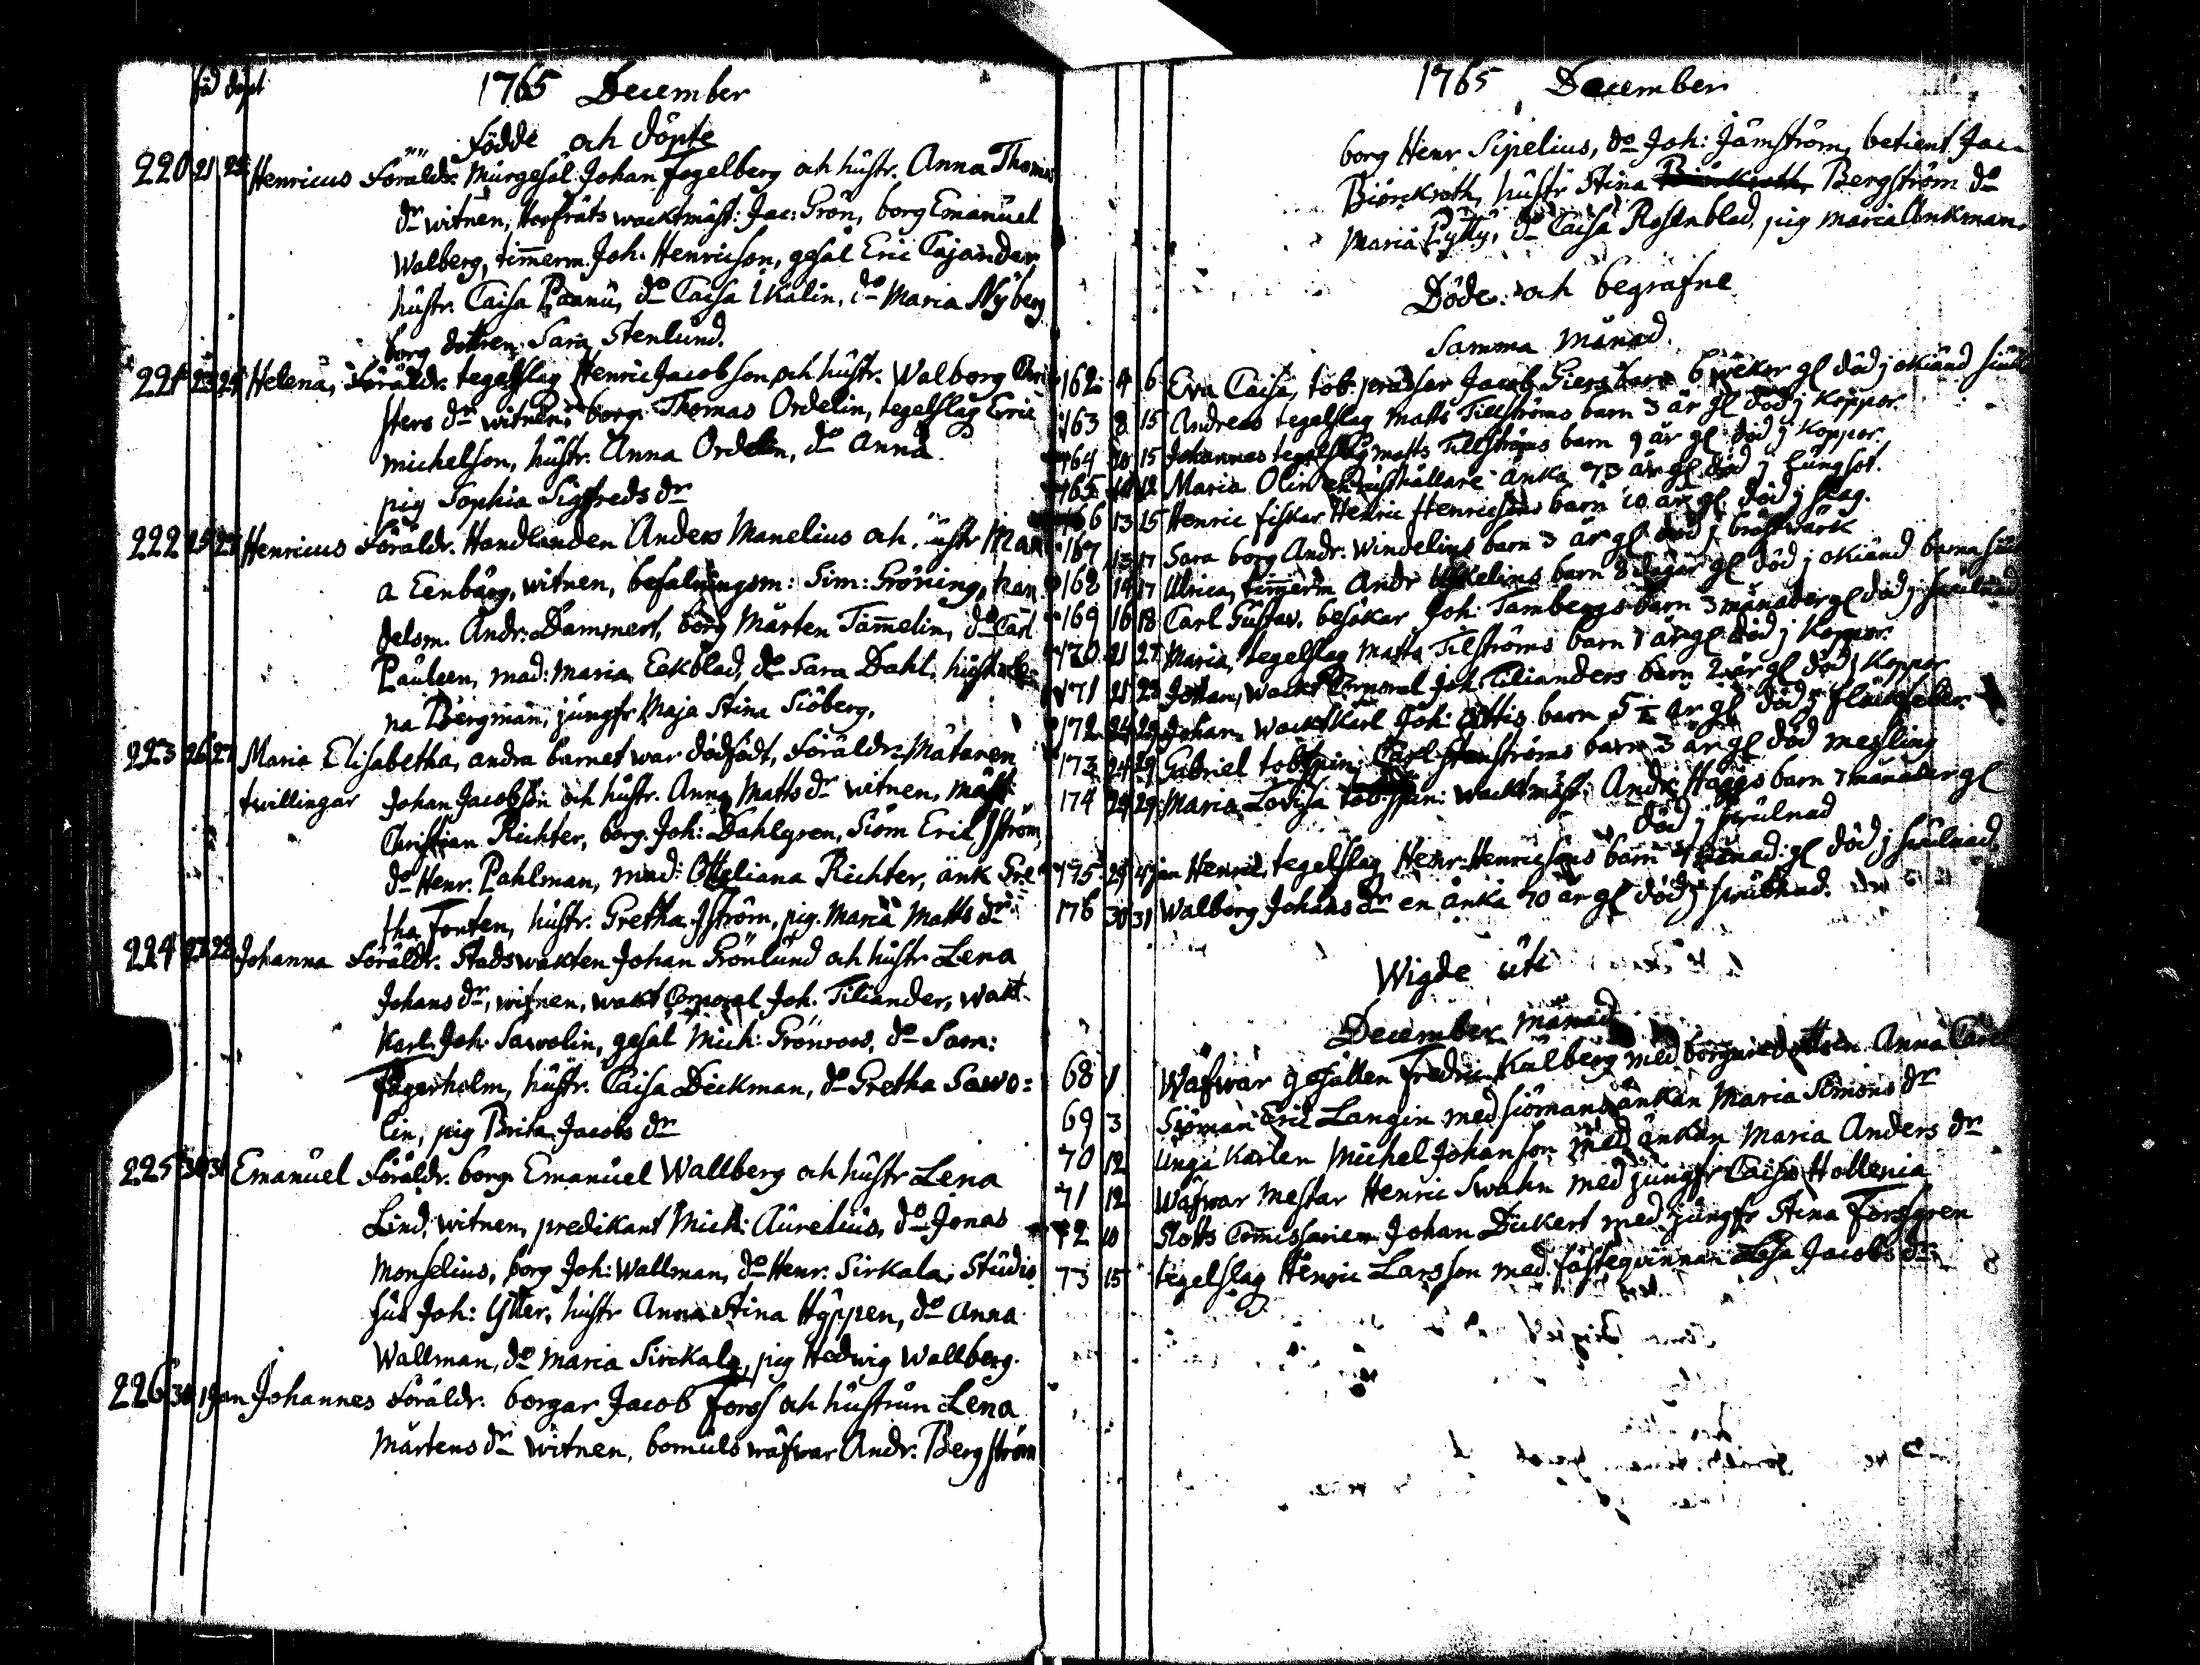 föd döpt
1765 December
Födde och döpte
220 21 22 Henricus Föräldr. Murgesäl Johan Fogelberg och hustr. Anna Thomæ
dr witnen, Hoofräts wacktmäst: Jac: Grön, borg Emanuel
Walberg, timerm. Joh. Henricson, gesäl Eric Cajander,
hustr. Caisa Paanu, do Caisa Ikalin, do Maria Nyberg
borg dottren Sara Stenlund.
221 23 24 Helena, Föräldr. tegelslag Henric Jacobson och hustr. Walborg Chri
sters dr witnen, borg. Thomas Ordelin, tegelslag Erric
Michelson, hustr. Anna Ordelin, do Anna
pig Sophia Sigfreds dr
222 25 27 Henricus Föräldr. Handlanden Anders Manelius och hustr Mari
a Eenbärg, witnen, befalningsm: Sim: Gröning, han
delsm. Andr: Dammert, borg Mårten Tamelin, do Carl
Pauleen, mad: Maria Eekblad, do Sara Dahl, hustr. Le
na Bergman, jungfr Maja Stina Siöberg,
223 26 27 Maria Elisabetha, andra barnet war dödfödt, Föräldr. Mätaren
twillingar Johan Jacobson och hustr. Anna Matts dr witnen, mäst:
Christian Richter, borg. Joh: Dahlgren, Siöm Eric Iström,
do Henr. Pahlman, mad: Otteliana Richter, änk Gre
tha Fonten, hustr. Gretha Iström, pig. Maria Matts dr
224 27 28 Johanna Föräldr. Stadswakten Johan Grönlund och hustr Lena
Johans dr, witnen, wakt Corporal Joh. Tiliander, Wakt
Karl Joh: Sawolin, gesäl Mich: Grönroos, do Sam:
Fagerholm, hustr. Caisa Dickman, do Gretha Sawo=
lin, pig Brita Jacobs dr
225 30 31 Emanuel Föräldr. borg. Emanuel Wallberg och hustr Lena
Lind, witnen, predikant Mich: Aurelius, do Jonas
Monselius, borg Joh: Wallman, do Henr. Sirkala, Studio
sus Joh: Ytter, hustr Anna Stina Hyppen, do Anna
Wallman, do Maria Sirkala, pig Hedwig Wallberg.
226 30 1 Jan Johannes Föräldr. borgar Jacob Forss och hustrun Lena
Mårtens dr witnen, bomuls wäfwar Andr. Bergström
1765 December
borg Henr Sipelius, do Joh: Jämström, betient Jac
Biörckroth, hustr Stina Bergström do
Maria Pytty, do Caisa Rosenblad, pig Maria Ankman.
Döde och begrafne
Samma Månad.
162 4 6 Eva Caisa, tob. Jacob Giers barn 6 wekor gl död j okiänd siuk
163 8 15 Andreas tegelslag Matts Tillströms barn 3 år gl död j Koppor.
164 10 15 Johannes tegelslag Matts Tillströms barn 9 år gl död j Koppor.
165 10 12 Maria Olin änka 73 år gl död j lungsot.
166 13 15 Henric fiskar Henric Henricsons barn 10 år gl död j slag.
167 13 17 Sara borg Andr: Windelins barn 3 år gl död j bröstwärk
168 14 17 Ulrica, timerm Andr barn 8 dagar gl död j okiänd barnasiuk
169 16 18 Carl Gustav, besökar Joh: Tambergs barn 3 månader gl död j swulnad
170 21 27 Maria, tegelslag Matts Tilströms barn 1 år gl död j Koppor.
171 21 23 Johan, wackt Corporal Joh Tilianders barn 2 år gl död j Koppor
172 24 29 Johan wacktkarl Joh: barn 5 1/2 år gl död j fläckfeber.
173 24 29 Gabriel tobspin: Carl Stenströms barn 3 år gl död messling
174 29 29 Maria Lovisa wacktmäst: Andr Haggs barn 7 månader gl
död j swulnad
175 29 4 jan Henric, tegelslag Henr: Henricsons barn månad: gl död j swulnad.
176 30 31 Walborg Johans dr en änka 70 år gl död j swulnad.
Wigde uti
December Månad
68 1 Wäfwar gesällen Fredric Kulberg med borgaredottren Anna Carl
69 3 Siöman Eric Langin med siömansänkan Maria Simons dr
70 12 Unga Karlen Michel Johanson med änkan Maria Anders dr
71 12 Wäfwar Mestar Henric Swahn med jungfr Caisa Hollenia
72 10 Slotts Comissarien Johan Dickert med jungfr Stina Forsgren
73 15 tegelslag Henric Larsson med fästeqvinnan Lisa Jacobs dr